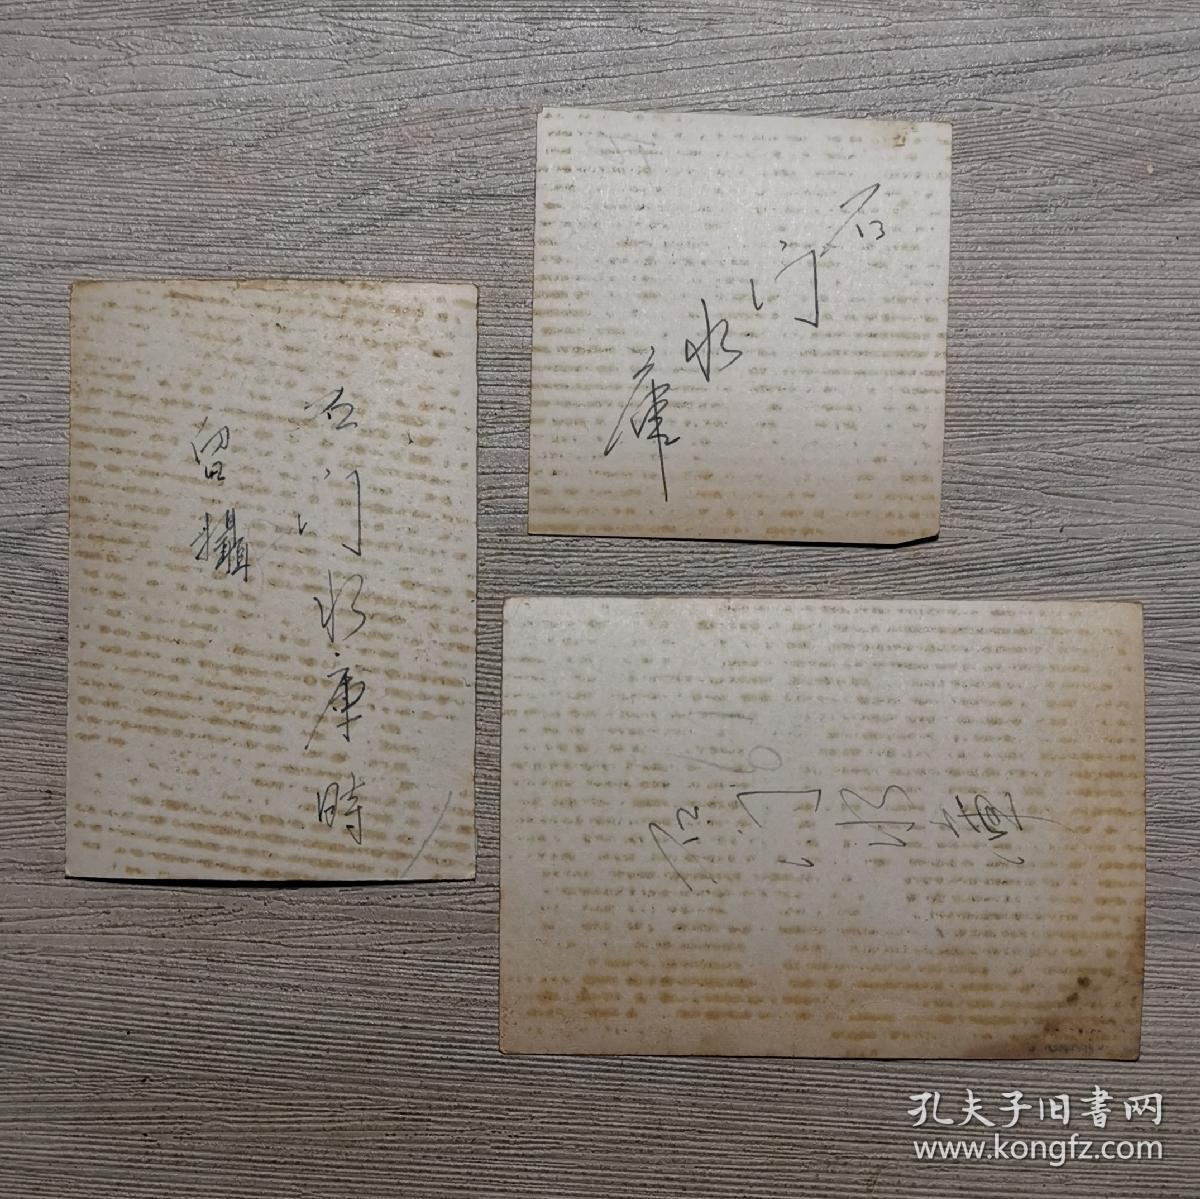 石门水库
石门水库時
留攝
石门水庫
孔夫子旧書网
www.kongfz.com